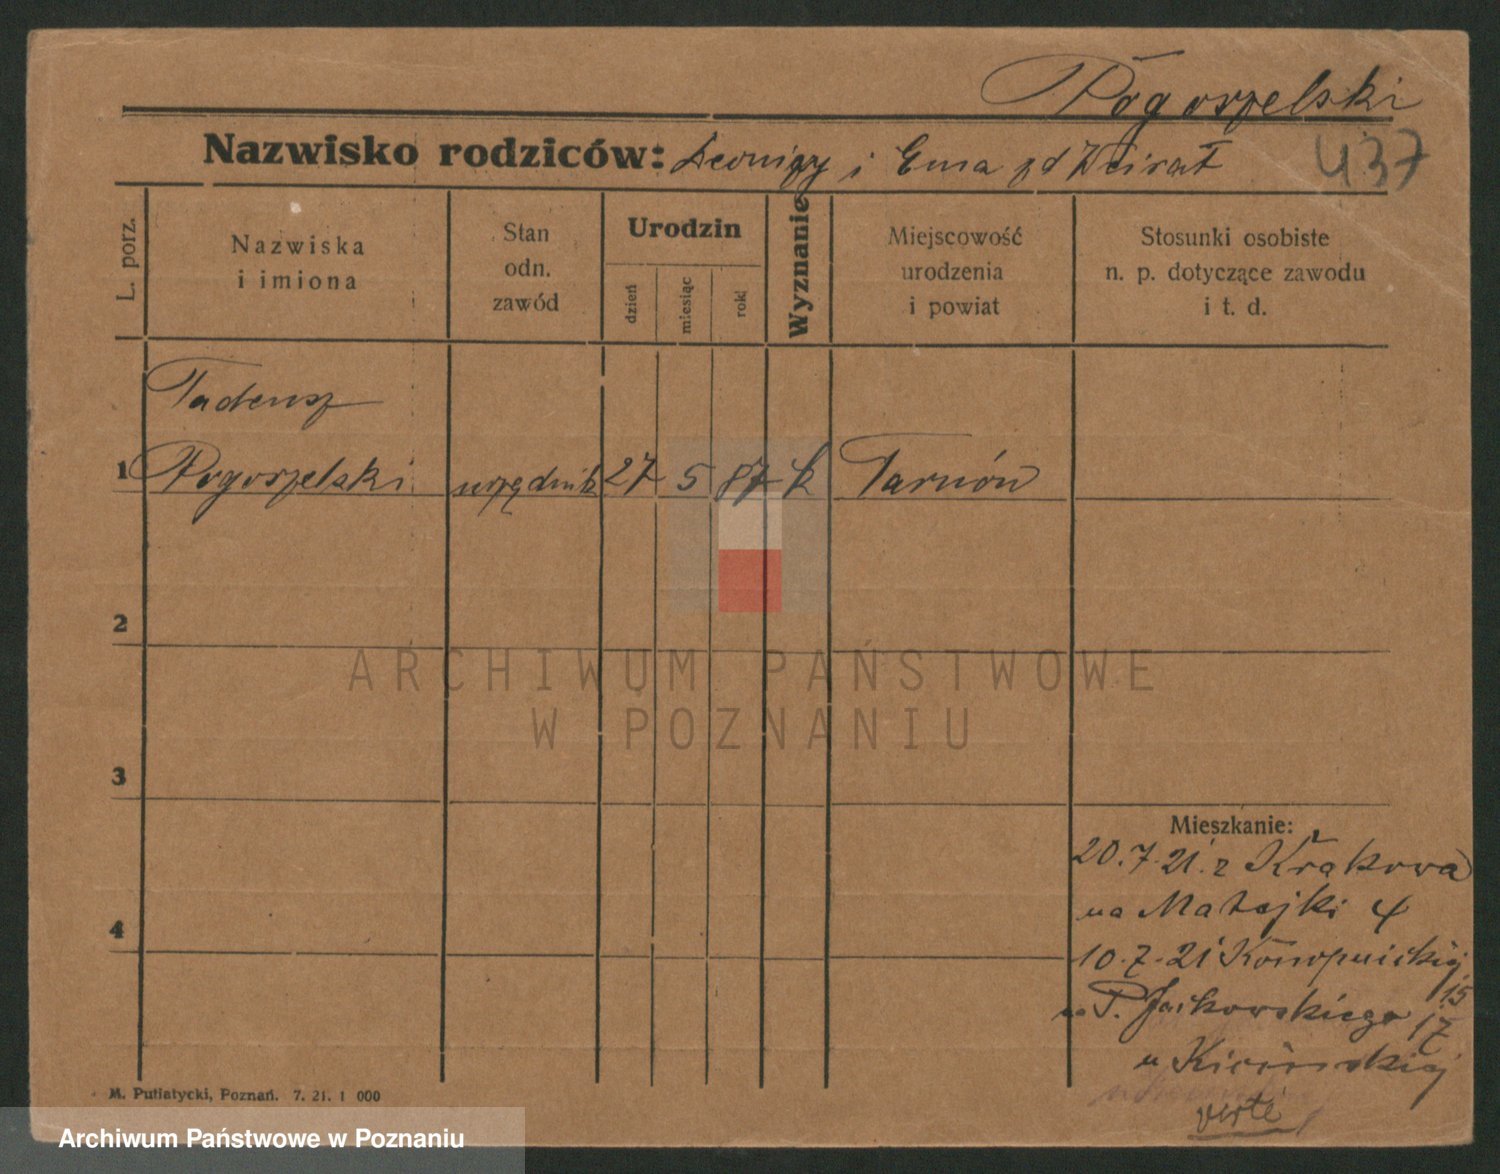 Pogorzelski
437
Nazwisko rodziców: i Ema
L. porz.
Nazwiska
i imiona
Stan
odn.
zawód
Urodzin
dzień
miesiąc
rok
Wyznanie
Miejscowość
urodzenia
i powiat
Stosunki osobiste
n. p. dotyczące zawodu
i t. d.
Tadeusz
1 Pogorzelski urzędnik 27 5 87 k Tarnów
2
ARCHIWUM PAŃSTWOWE
W POZNANIU
3
Mieszkanie:
20.7.21. z Krakowa
na Matejki 4
4
10.7.21 Konopnickiej
15
P. Jackowskiego 17
u
verte
M. Putiatycki, Poznań. 7. 21. 1 000
Archiwum Państwowe w Poznaniu